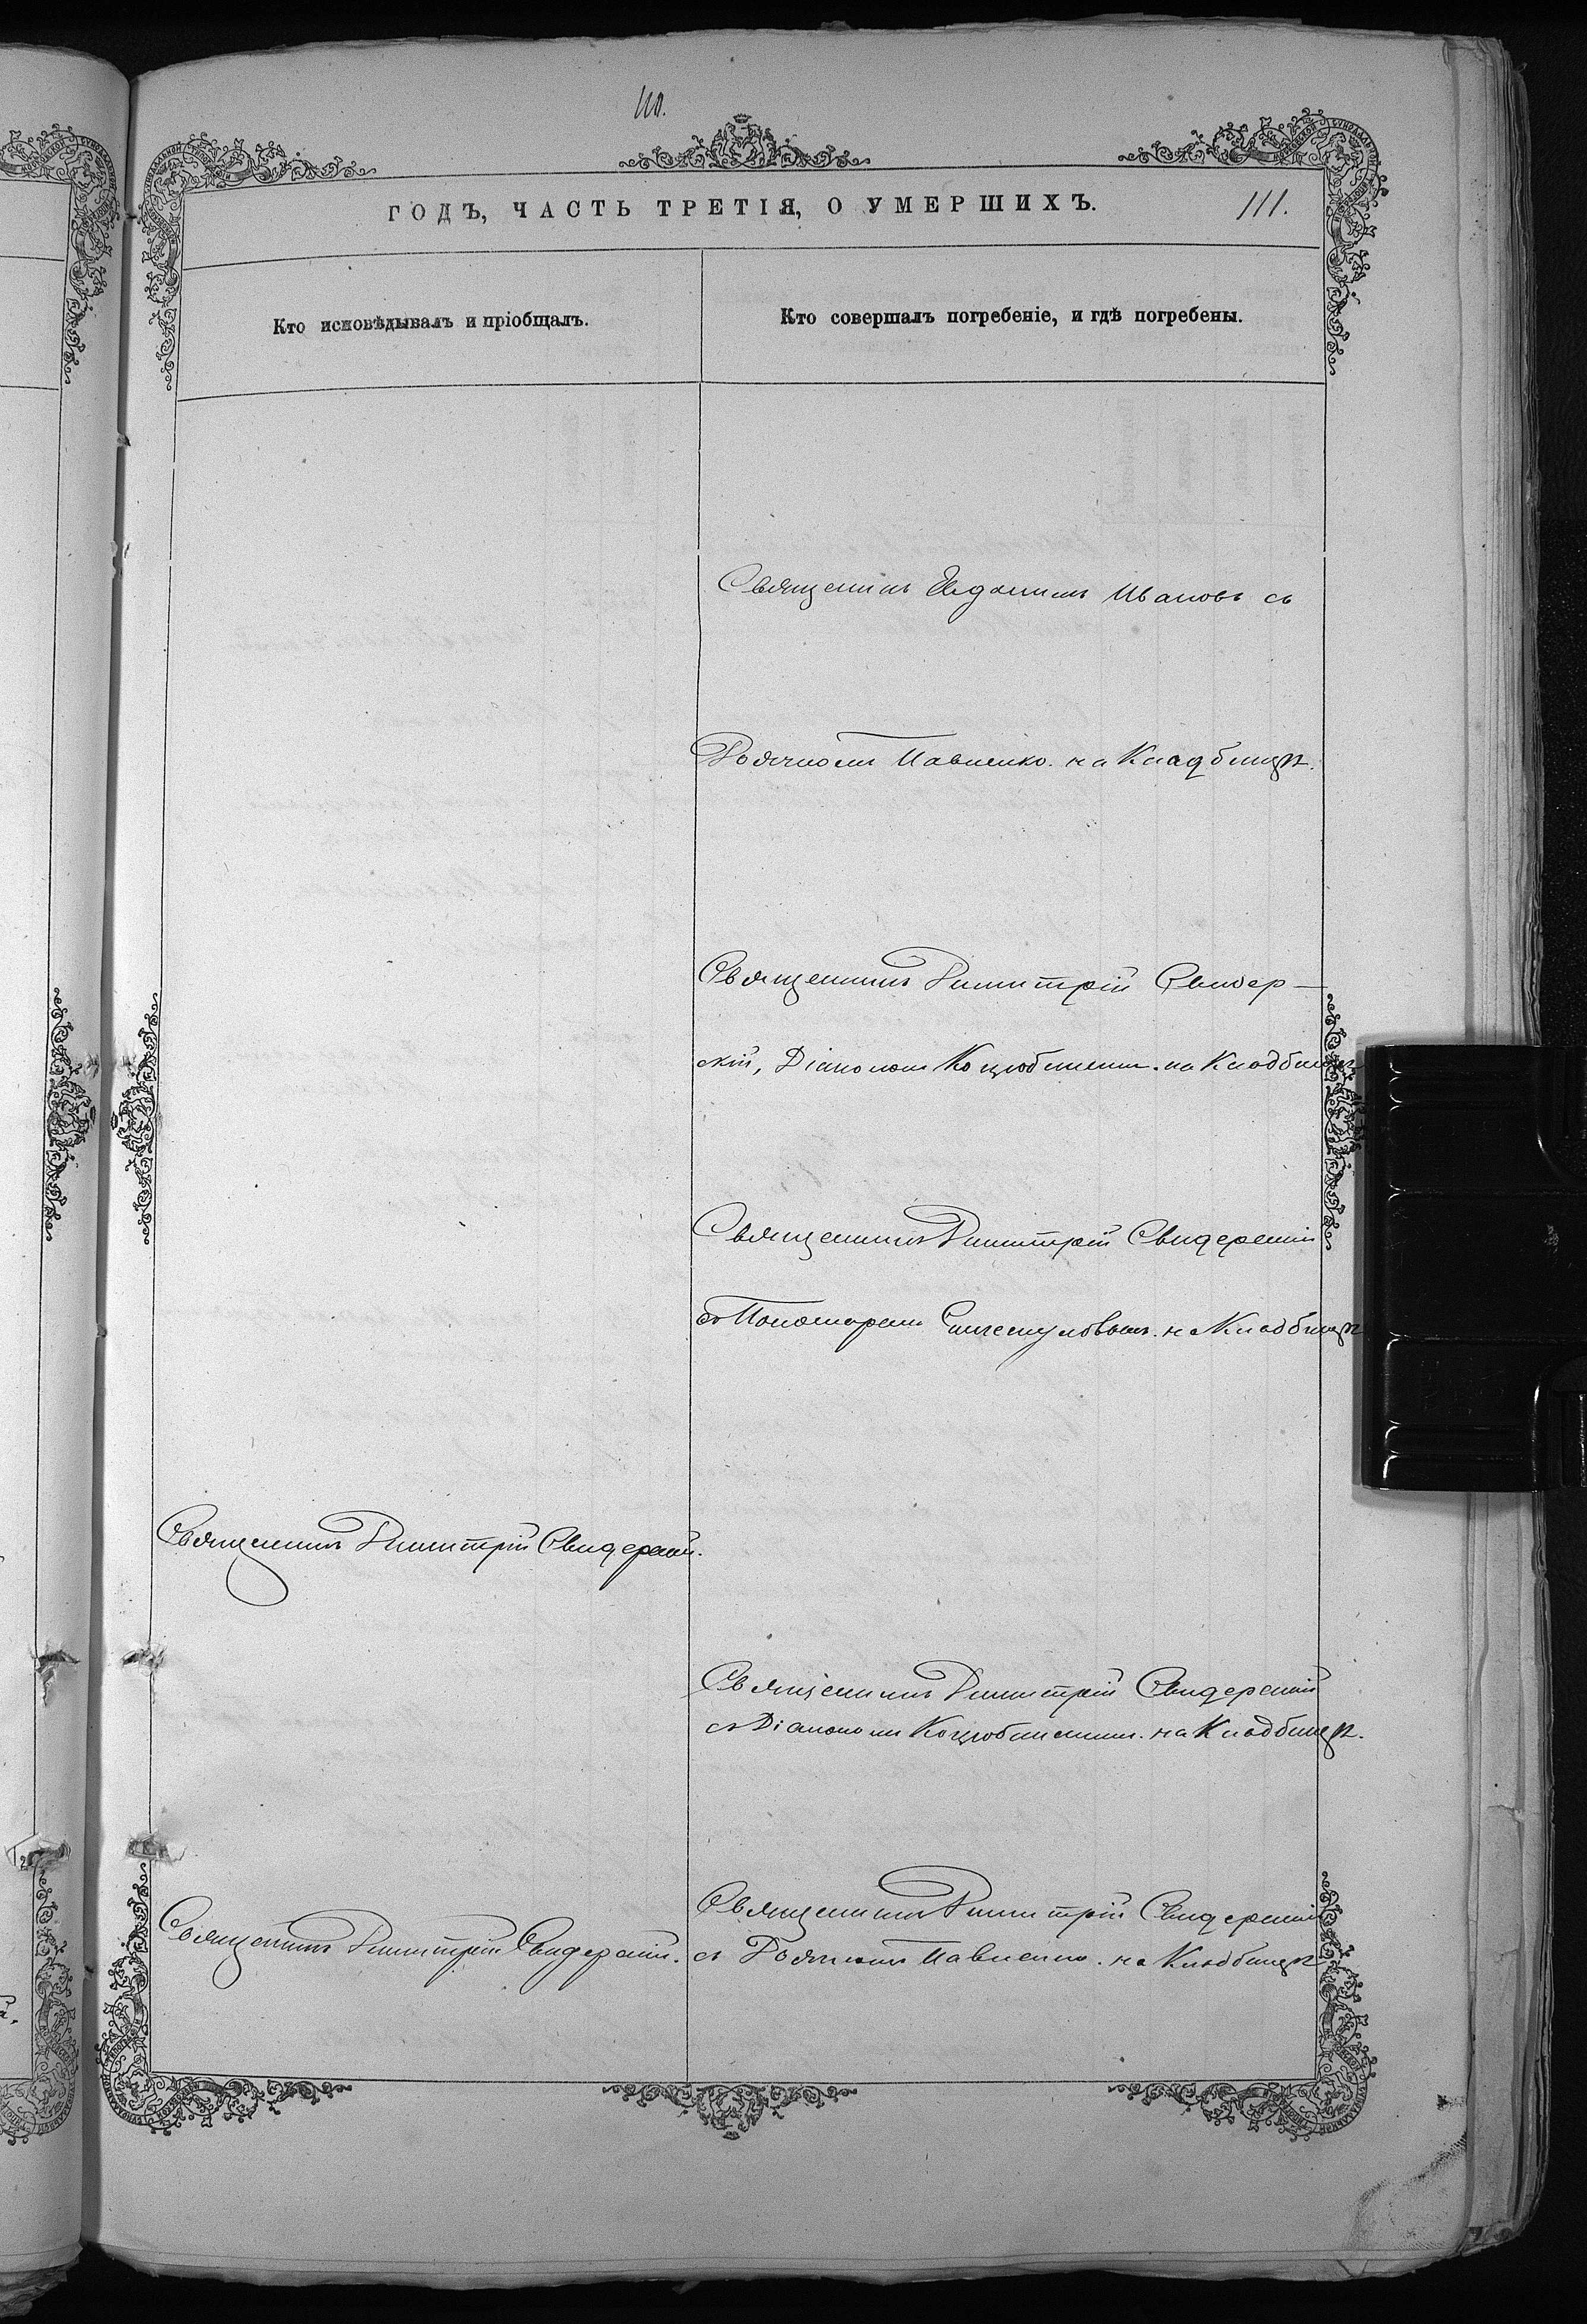 110.
ГОДЪ, ЧАСТЬ ТРЕТІЯ, О УМЕРШИХЪ.
111.
Кто исповѣдывалъ и пріобщалъ.
Кто совершалъ погребеніе, и гдѣ погребены.
Священникъ Евдокимъ Ивановъ съ
Дьячкомъ Павленко. на Кладбищѣ.
Священникъ Димитрій Свидер-
скій, Діакономъ Коцюбинскимъ. на Кладбищѣ
Священникъ Димитрій Свидерскій
съ Пономаремъ на Кладбищѣ
Священникъ Димитрій Свидерскій.
Священникъ Димитрій Свидерскій
съ Діакономъ Коцюбинскимъ. на Кладбищѣ.
Священникъ Димитрій Свидерскій.
Священникъ Димитрій Свидерскій
съ Дьячкомъ Павленко. на Кладбищѣ